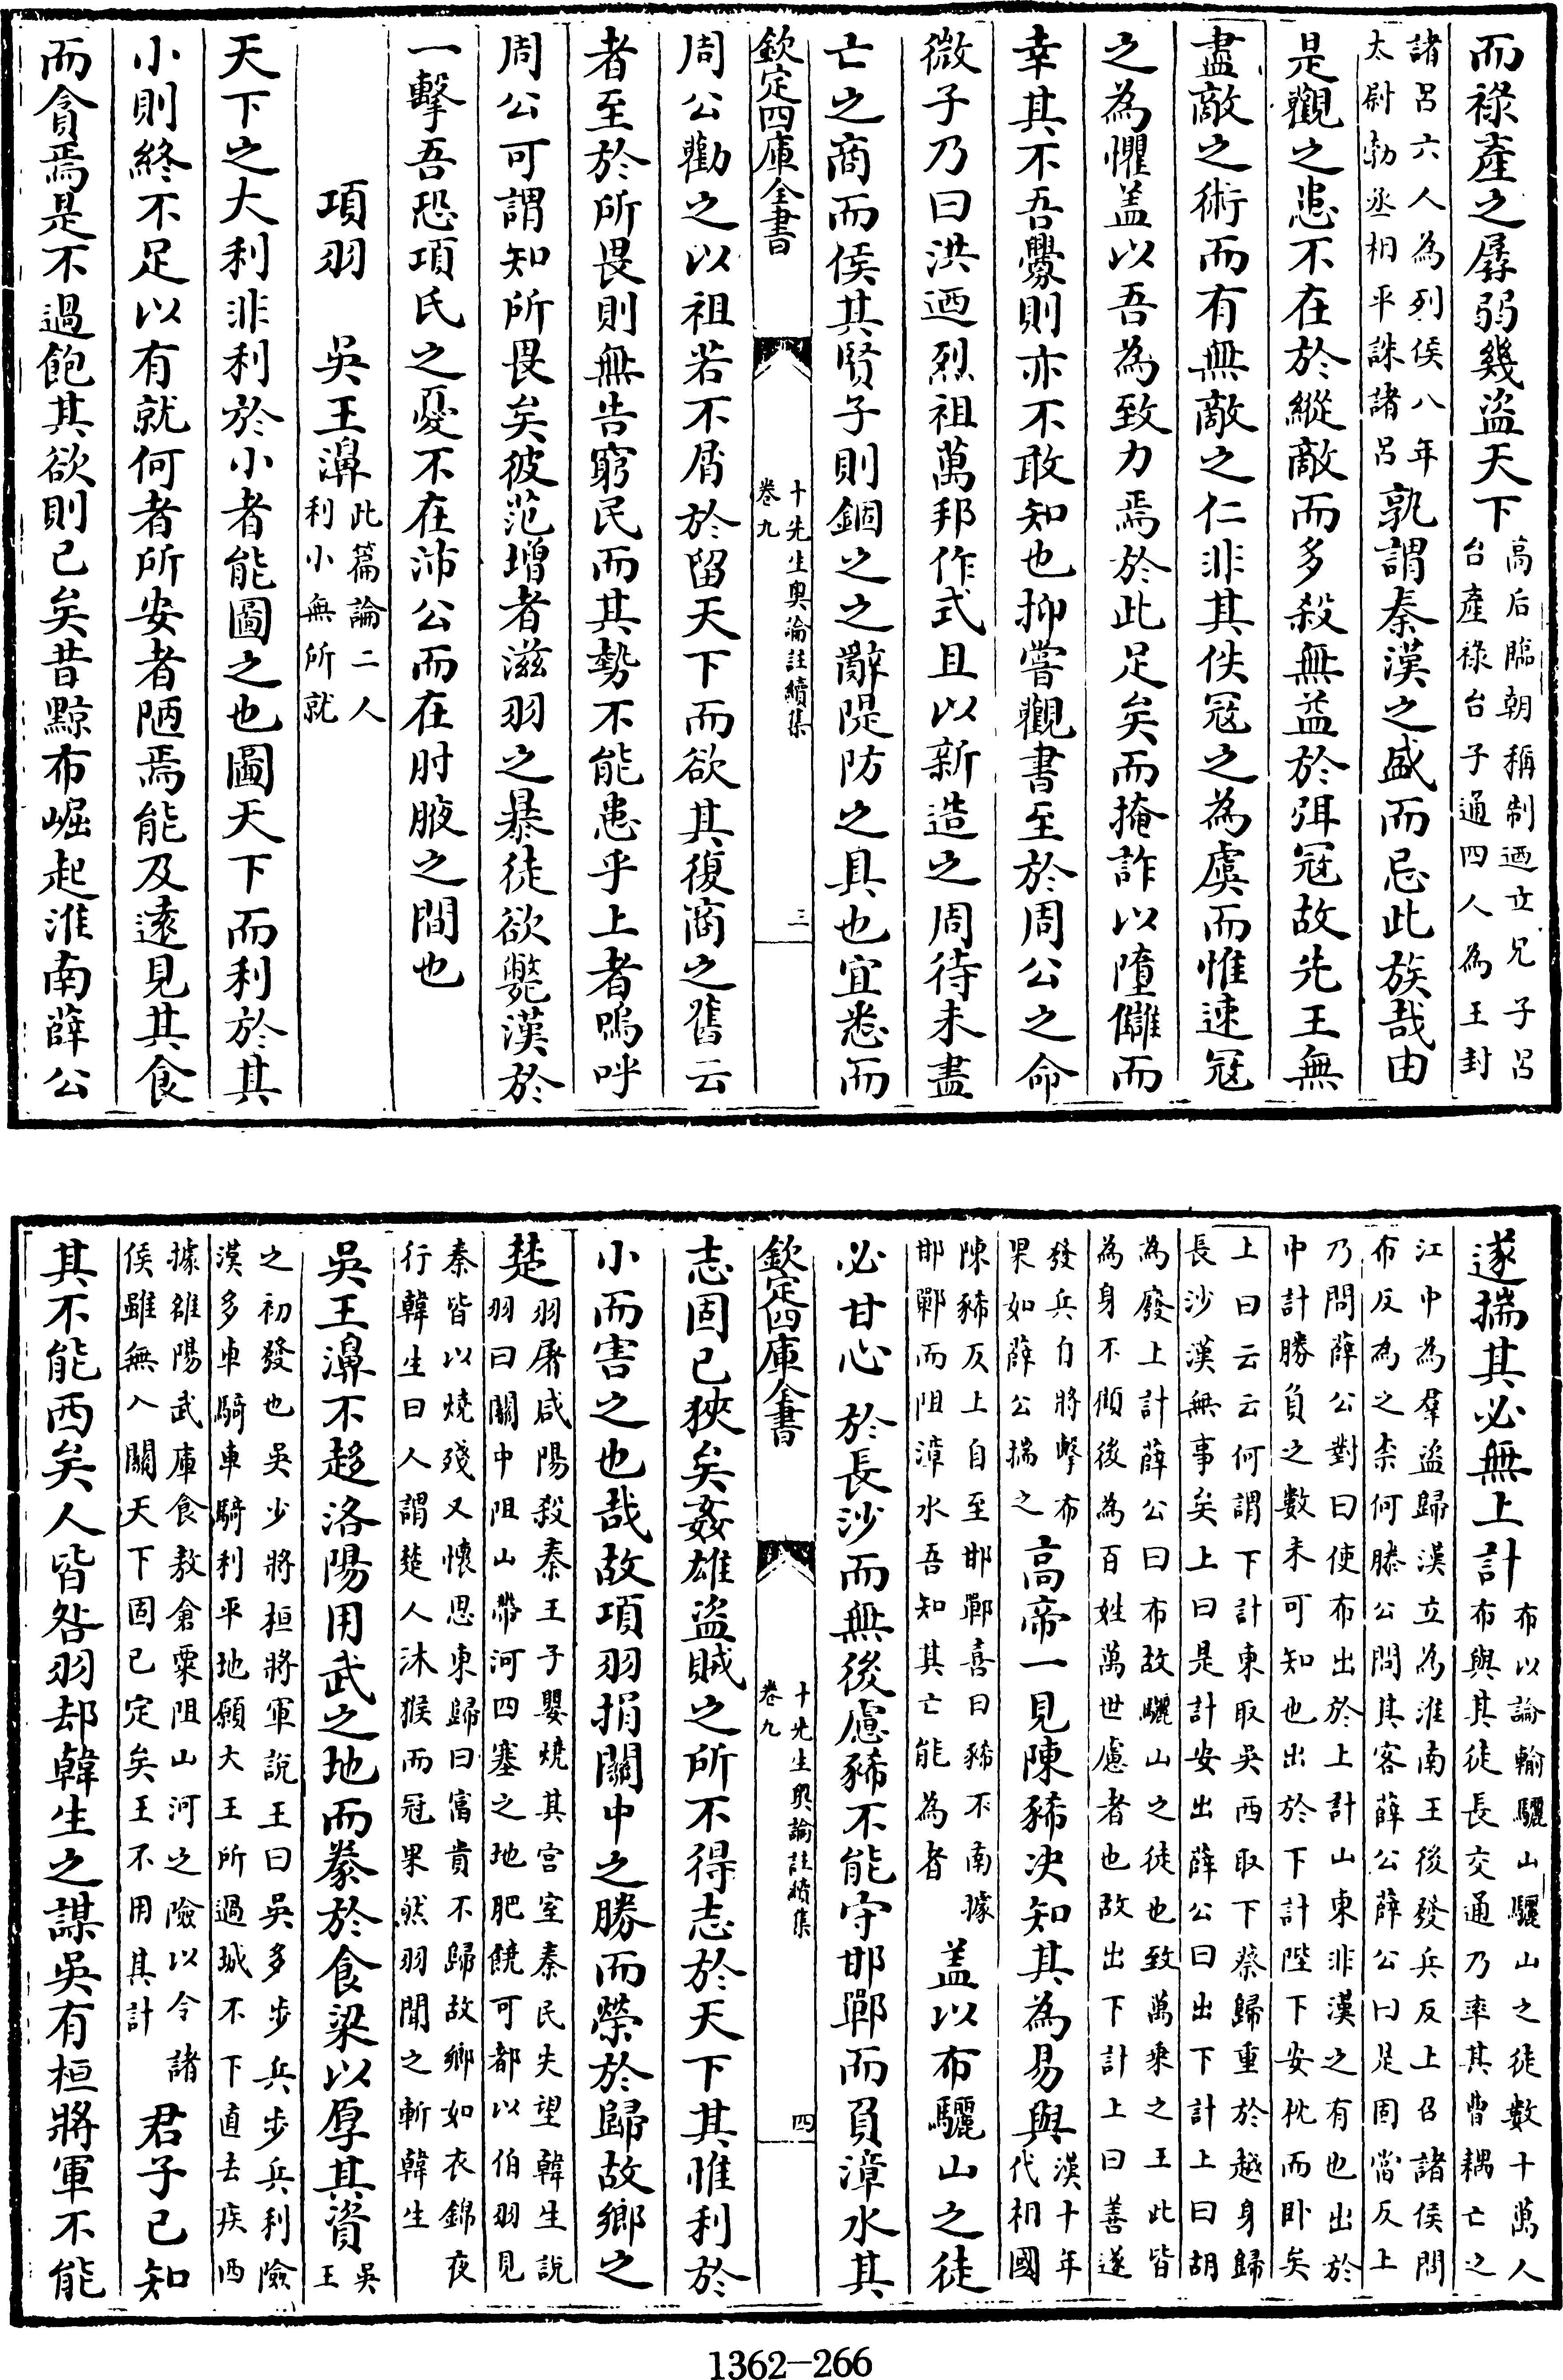 而祿產之孱弱幾盜天下高后臨朝稱制迺立兄子吕台產祿台子通四人為王封
諸吕六人為列侯八年太尉勃丞相平誅諸吕孰謂秦漢之盛而忌此族哉由
是觀之患不在於縱敵而多殺無益於弭冦故先王無
盡敵之術而有無敵之仁非其佚冦之為虞而惟速冦
之為懼盖以吾為致力焉於此足矣而掩詐以墮讎而
幸其不吾釁則亦不敢知也抑嘗觀書至於周公之命
微子乃曰洪迺烈祖萬邦作式且以新造之周待未盡
亡之商而侯其賢子則錮之之辭隄防之具也宜悉而
欽定四庫全書
十先生奥論註續集
卷九
三
周公勸之以祖若不屑於留天下而欲其復商之舊云
者至於所畏則無告窮民而其勢不能患乎上者嗚呼
周公可謂知所畏矣彼范增者滋羽之暴徒欲斃漢於
一擊吾恐項氏之憂不在沛公而在肘腋之間也
項羽 吳王濞此篇論二人利小無所就
天下之大利非利於小者能圖之也圖天下而利於其
小則終不足以有就何者所安者陋焉能及遠見其食
而貪焉是不過飽其欲則已矣昔黥布崛起淮南薛公
遂揣其必無上計布以論輸驪山驪山之徒數十萬人布與其徒長交通乃率其曹耦亡之
江中為羣盜歸漢立為淮南王後發兵反上召諸侯問布反為之柰何滕公問其客薛公薛公曰是固當反上
乃問薛公對曰使布出於上計山東非漢之有也出於中計勝負之數未可知也出於下計陛下安枕而卧矣
上曰云云何謂下計東取吳西取下蔡歸重於越身歸長沙漢無事矣上曰是計安出薛公曰出下計上曰胡
為廢上計薛公曰布故驪山之徒也致萬乘之王此皆為身不顧後為百姓萬世慮者也故出下計上曰善遂
發兵自將擊布果如薛公揣之高帝一見陳豨决知其為易與漢十年代相國
陳豨反上自至邯鄲喜曰豨不南據邯鄲而阻漳水吾知其亡能為者盖以布驪山之徒
必甘心於長沙而無後慮豨不能守邯鄲而負漳水其
欽定四庫全書
十先生奥論註續集
卷九
四
志固已狹矣姦雄盜賊之所不得志於天下其惟利於
小而害之也哉故項羽捐關中之勝而榮於歸故鄉之
楚羽屠咸陽殺秦王子嬰燒其宫室秦民失望韓生說羽曰關中阻山帶河四塞之地肥饒可都以伯羽見
秦皆以燒殘又懷思東歸曰富貴不歸故鄉如衣錦夜行韓生曰人謂楚人沐猴而冠果然羽聞之斬韓生
吳王濞不趍洛陽用武之地而豢於食梁以厚其資吳王
之初發也吳少將桓將軍說王曰吳多步兵步兵利險漢多車騎車騎利平地願大王所過城不下直去疾西
據雒陽武庫食敖倉粟阻山河之險以令諸侯雖無入關天下固已定矣王不用其計君子已知
其不能西矣人皆咎羽却韓生之謀吳有桓將軍不能
1362—266